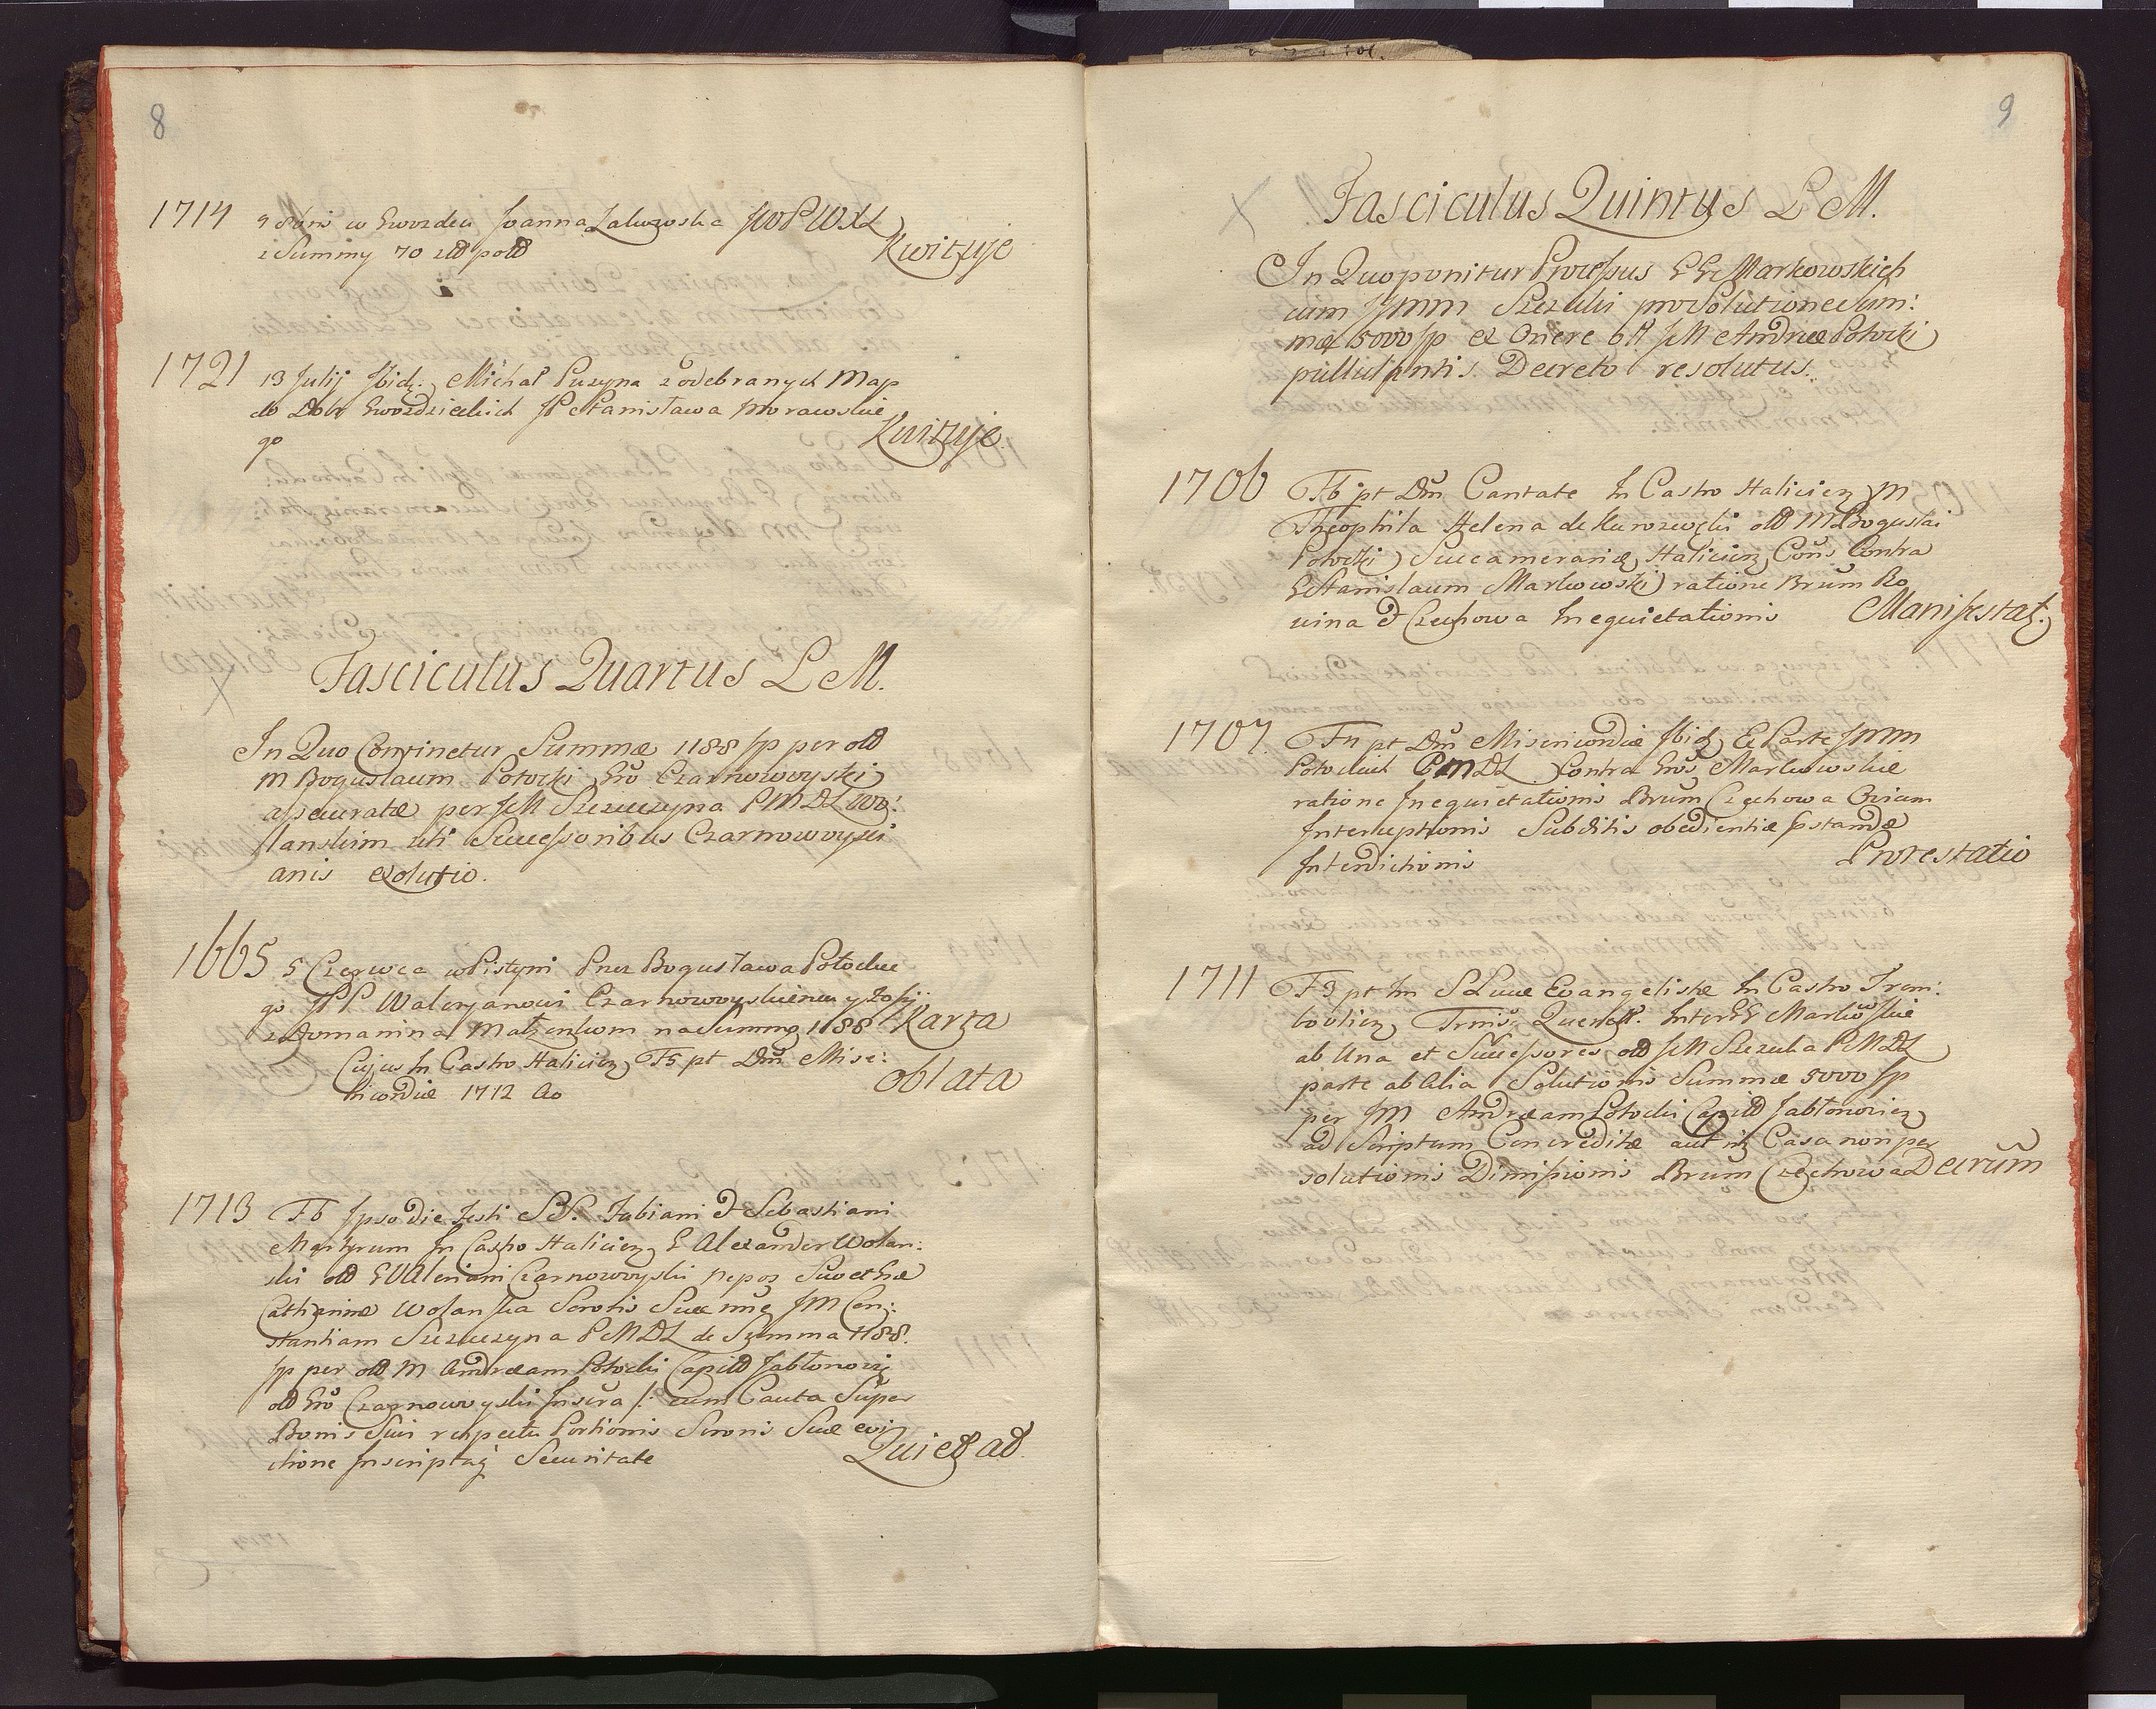 8
1714 9 8bris w Gwozdcu Joanna Zaluzowska JWP WXL
z Summy 70 złł poll
Kwituje
1721 13 Julij Ibid: Michał Puzyna z odebranych Map
do Dobr Gwozdzieckich JP Stanisława Morawskie
go
Kwituje
Fasciculus Quartus L M.
In Quo Continetur Summæ 1188 fp per olł
M Bogusłaum Potocki Gro Czarnowoyski
assecuratæ per JM Szczuczyna PMDL Wo:
lanskim uti Successoribus Czarnowoysci
anis exolutio.
1665 5 Czerwca w Pistyni Prez Bogusława Potockie
go JPP Waleryanowi Czarnowoyskiemu y Zofij
z Domanina Małzonkom na Summę 1188 Karta
Cujus In Castro Haliciens F5 pt Dm̃ Mise:
ricordiæ 1712 Ao
oblata
1713 F6 Ipso die festi SS. Fabiani & Sebastiani
Martyrum In Castro Haliciens G Alexander Wolan:
ski olł G Valeriani Czarnowoyski nepos Suo et Græ
Catharinæ Wolanska Sororis Suæ nõe JM Con:
stantiam Szczuczyna PMDL de Summa 1188.
fp per olł M Andream Potocki Capitł Jabłonowien
olł Gro Czarnowoyski Inscra /: cum Cauta Super
Bonis Suis respectu Portionis Sororis Suæ evi
ctione Inscriptaq Securitate
Quietat
9
Fasciculus Quintus L M.
In Quo ponitur Processus GG Markowskich
cum JMM Szczuki pro Solutione Sum:
mæ 5000 fp ex Onere olł JM Andreæ Potocki
pullulantis Decreto resolutus.
1706 F6 pt Dm̃ Cantate In Castro Haliciens M
Theophila Helena de Kurozwęki olł M Bogusłai
Potocki Succamerariæ Haliciens Cons Contra
G Stanislaum Markowski ratione Brum Ro
uina & Czechowa Inequietationis
Manifestat.
1707. F4 pt Dm̃ Misericordiæ Ibid Ex Parte JMM
Potockich PMDL Contra Gros Markowskie
ratione Inequietationis Brum Czechowa Oviam
Interceptionis Subditis obedientiæ pstandæ
Interdictionis
Protestatio
1711 F3 pt In S Lucæ Evangelistæ In Castro Trem:
bovliens Trmis Querell. Inter GG Markowskie
ab Una et Successores olł JM Szczuka PMDL
parte ab Alia Solutionis Summæ 5000 fp
per JM Andream Potocki Capitł Jabłonowien
ad Scriptum Concreditæ aut in Casu non per
solutionis Dimissionis Brum Czechowa Decrum̃